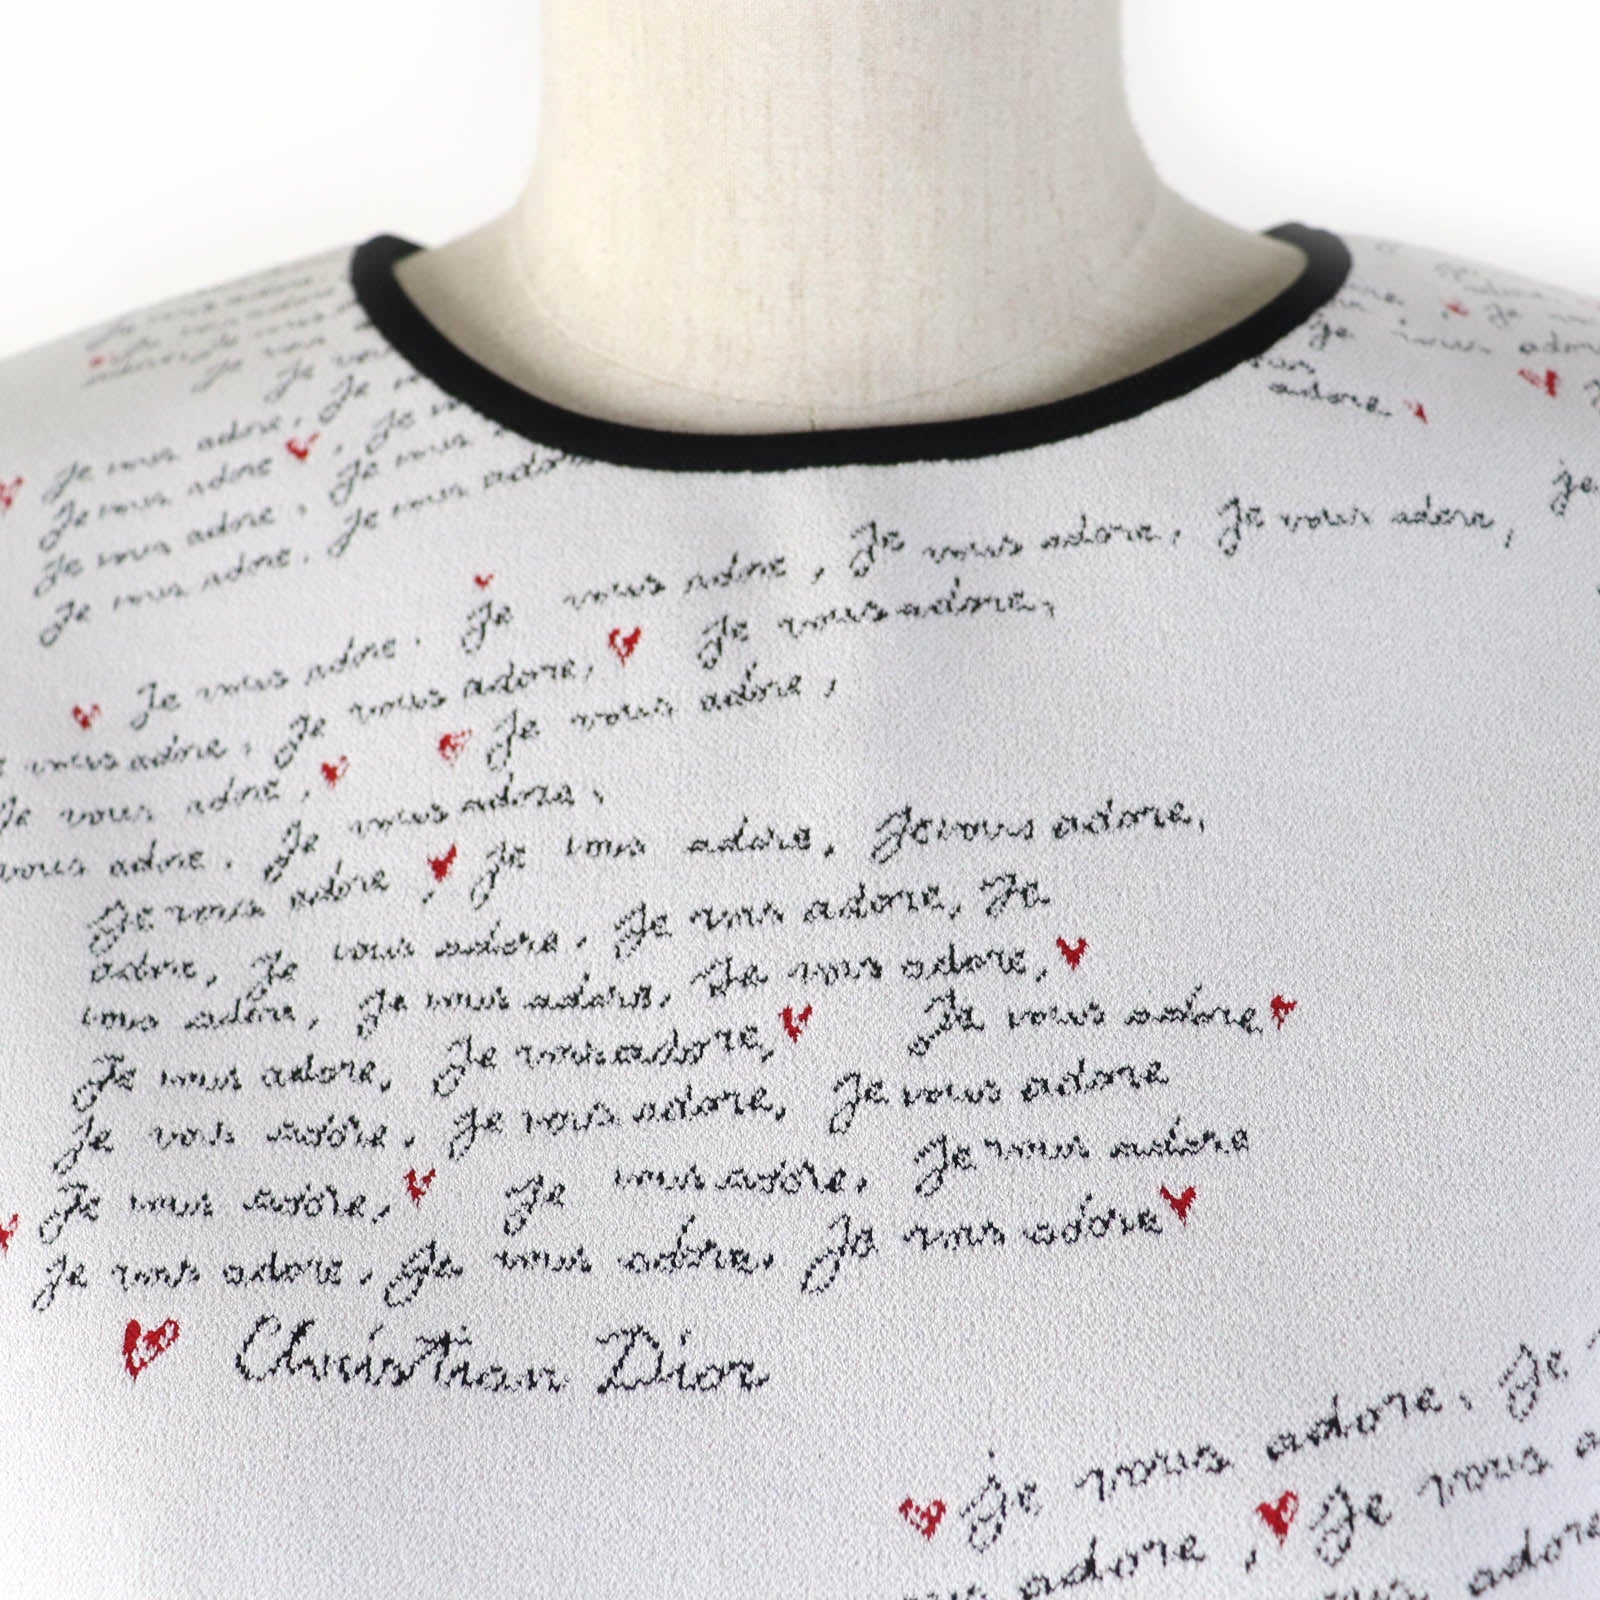 Je vous adore, Je
Je vous adore, Je
Je vous adore, Je vous
Je vous adore. Je vous adore
adore
je vous adore
Je vous adore. Je vous adore, Je vous adore, Je vous adore,
vous adore, Je vous adore, Je vous adore,
Je vous adore, Je vous adore,
vous adore. Je vous adore,
Je vous adore, Je vous adore, Je vous adore,
adore, Je vous adore. Je vous adore, Je
vous adore, Je vous adore, Je vous adore,
Je vous adore, Je vous adore, Je vous adore
Je vous adore, Je vous adore, Je vous adore
Je vous adore, Je vous adore, Je vous adore
Je vous adore, Je vous adore, Je vous adore
Christian Dior
Je vous adore, Je
adore, Je vous
adore